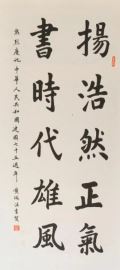 揚浩然正氣
書時代雄風
熱烈慶祝中華人民共和國建國七十五週年